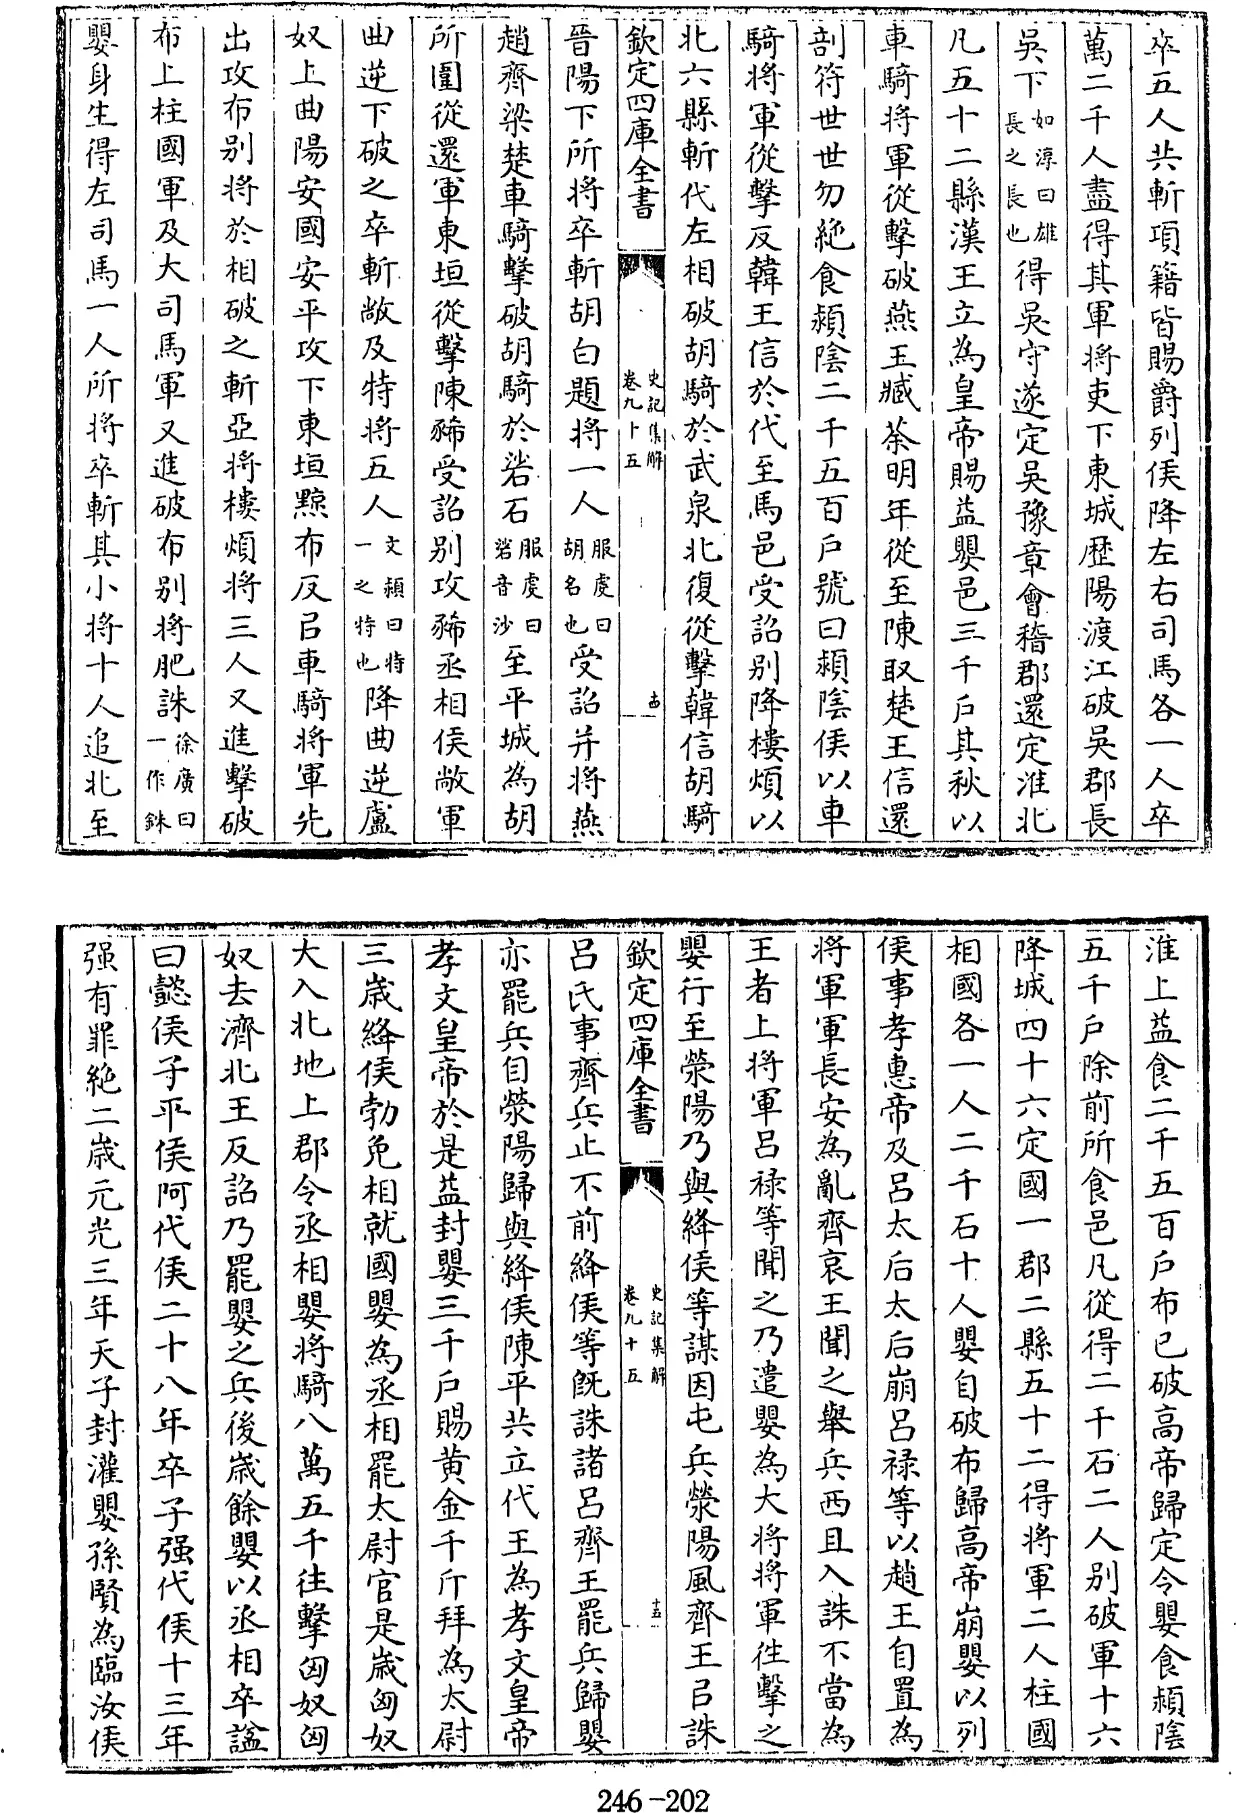 卒五人共斬項籍皆賜爵列侯降左右司馬各一人卒
萬二千人盡得其軍將吏下東城歷陽渡江破吳郡長
吳下如淳曰雄長之長也得吳守遂定吳豫章會稽郡還定淮北
凡五十二縣漢王立為皇帝賜益嬰邑三千戶其秋以
車騎將軍從擊破燕王臧荼明年從至陳取楚王信還
剖符世世勿絶食潁陰二千五百戶號曰潁陰侯以車
騎將軍從擊反韓王信於代至馬邑受詔别降樓煩以
北六縣斬代左相破胡騎於武泉北復從擊韓信胡騎
欽定四庫全書
史記集解
卷九十五
十四
晉陽下所將卒斬胡白題將一人服虔曰胡名也受詔并將燕
趙齊梁楚車騎擊破胡騎於硰石服虔曰硰音沙至平城為胡
所圍從還軍東垣從擊陳豨受詔别攻豨丞相侯敞軍
曲逆下破之卒斬敞及特將五人文潁曰特一之特也降曲逆盧
奴上曲陽安國安平攻下東垣黥布反㠯車騎將軍先
出攻布别將於相破之斬亞將樓煩將三人又進擊破
布上柱國軍及大司馬軍又進破布别將肥誅徐廣曰一作銖
嬰身生得左司馬一人所將卒斬其小將十人追北至
淮上益食二千五百戶布已破高帝歸定令嬰食潁陰
五千戶除前所食邑凡從得二千石二人别破軍十六
降城四十六定國一郡二縣五十二得將軍二人柱國
相國各一人二千石十人嬰自破布歸高帝崩嬰以列
侯事孝惠帝及呂太后太后崩呂祿等以趙王自置為
將軍軍長安為亂齊哀王聞之舉兵西且入誅不當為
王者上將軍呂祿等聞之乃遣嬰為大將將軍往擊之
嬰行至滎陽乃與絳侯等謀因屯兵滎陽風齊王㠯誅
欽定四庫全書
史記集解
卷九十五
十五
呂氏事齊兵止不前絳侯等旣誅諸呂齊王罷兵歸嬰
亦罷兵自滎陽歸與絳侯陳平共立代王為孝文皇帝
孝文皇帝於是益封嬰三千戶賜黄金千斤拜為太尉
三歳絳侯勃免相就國嬰為丞相罷太尉官是歳匈奴
大入北地上郡令丞相嬰將騎八萬五千往擊匈奴匈
奴去濟北王反詔乃罷嬰之兵後歳餘嬰以丞相卒諡
曰懿侯子平侯阿代侯二十八年卒子强代侯十三年
强有罪絶二歳元光三年天子封灌嬰孫賢為臨汝侯
246-202